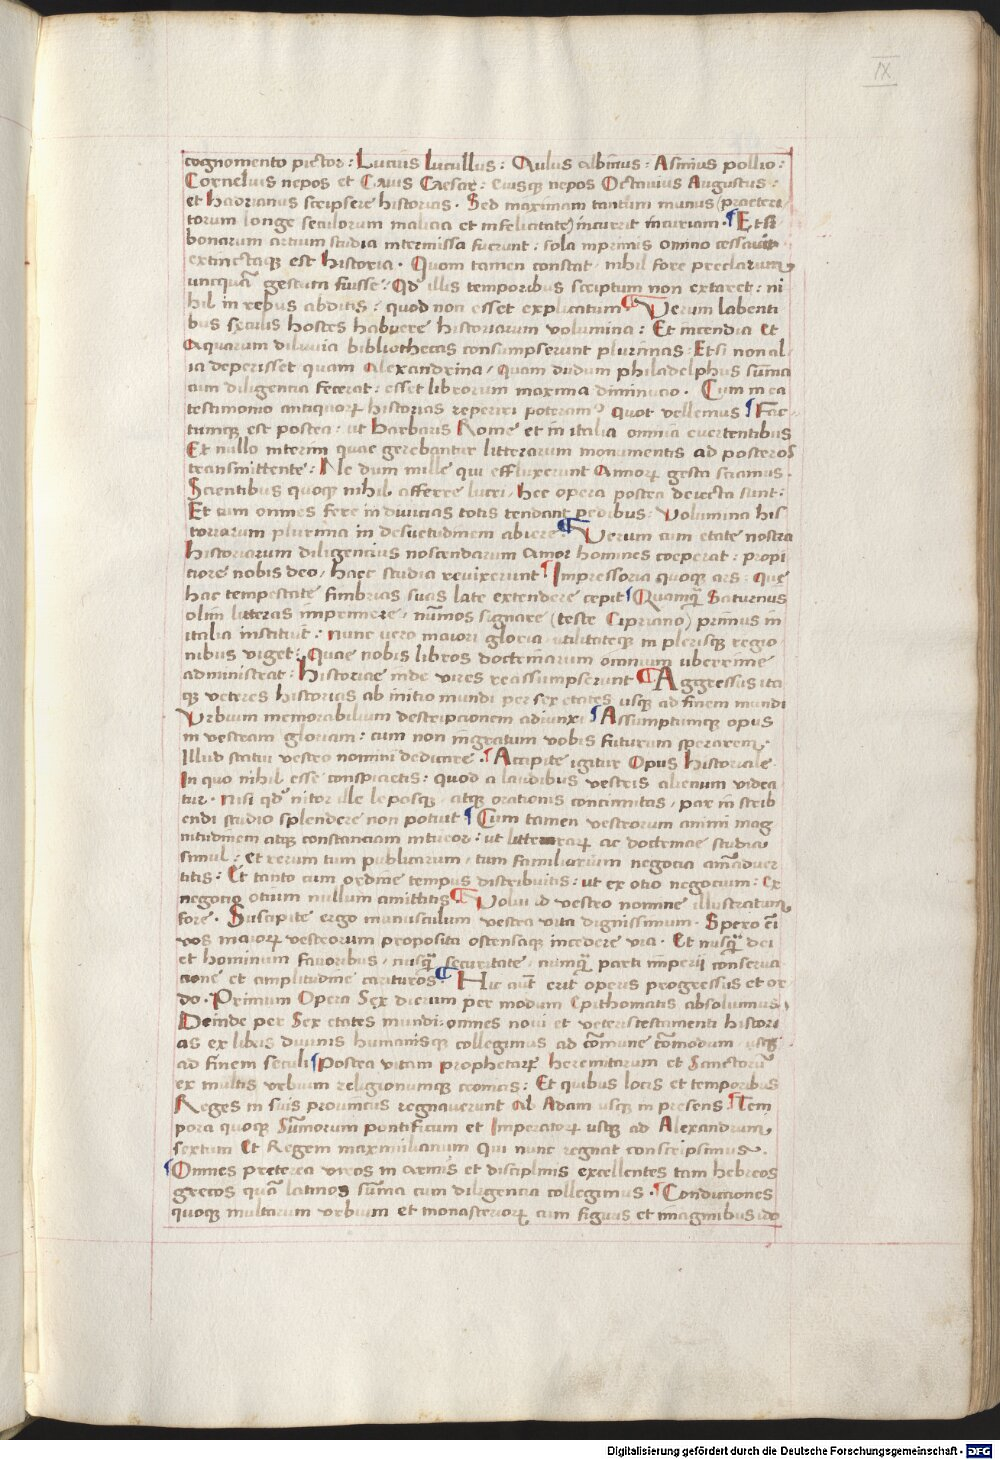 IX
cognomento pictor: Lucius lucullus: Aulus albinus: Asinius pollio:
Cornelius nepos et Caius Caesar: eiusqȝ nepos Octavius Augustus:
et hadrianus scripsere historias. Sed maximam tantum munus (praeteri
torum longe seculorum malicia et infelicitate) incurrit incuriam. ¶ Etsi
bonarum artium studia intermissa fuerunt: sola inprimis omnino cessavit
extinctaqȝ est historia. Quom tamen constat nihil fore preclarum
uncquā gestum fuisse: Qd illis temporibus scriptum non extaret: ni
hil in rebus abditis: quod non esset explicatum ¶ Verum labenti
bus seculis hostes habuere historiarum volumina: Et incendia et
Aquarum diluvia bibliothecas consumpserunt plurimas: Etsi non al
ia deperisset quam Alexandrina, quam dudum philadelphus sūma
cum diligentia fecerat: esset librorum maxima diminucio. Cum in ea
testimonio antiquorꝝ historias reperiri poteram? quot vellemus ¶ Fac
tumqȝ est postea: ut barbaris Rome et in italia omnia evertentibus
Et nullo interim quae gerebantur litterarum monumentis ad posteros
transmittente: Ne dum mille qui effluxerunt Annorꝝ gesta sciamus.
Scientibus quoqȝ nihil afferre lucri, hec opera postea deiecta sunt:
Et cum omnes fere in divicias totis tendant pedibus: Volumina his
toriarum plurima in desuetudinem abiere. ¶ Verum cum etate nostra
historiarum diligencius noscendarum amor homines coeperat: propi
ciore nobis deo, haec studia revixerunt ¶ Impressoria quoqȝ ars: Que
hac tempestate fimbrias suas late extendere cepit ¶ Quamqȝ Saturnus
olim litteras imprimere, nūmos signare (teste Cipriano) primus in
italia instituit: nunc vero maiori gloria utilitateqȝ in plerisqȝ regio
nibus viget: Quae nobis libros doctrinarum omnium uberrime
administrat: Historiae inde vires reassumpserunt ¶ Aggressus ita
qȝ veteres historias ab initio mundi per sex etates usqȝ ad finem mundi
Urbium memorabilium descripcionem adiunxi ¶ Assumptumqȝ opus
in vestram gloriam: cum non ingratum vobis futurum sperarem:
Illud statui vestro nomini dedicare. ¶ Accipite igitur Opus historiale.
In quo nihil esse conspicietis: quod a laudibus vestris alienum videa
tur. nisi qd nitor ille leposqȝ, atqȝ orationis concinnitas, par in scrib
endi studio splendere non potuit ¶ Cum tamen vestrorum animi mag
nitudinem atqȝ constanciam intueor: ut litterarꝝ ac doctrinae studia
simul: et rerum tum publicarum, tum familiarium negocia animadver
titis: Et tanto cum ordine tempus distribuitis: ut ex otio negocium: ex
negotio otium nullum amittitis ¶ Volui id vestro nomine illustratum
fore. Suscipite ergo munusculum vestra vita dignissimum. Spero ei
vos maiorꝝ vestrorum proposita ostensaqȝ incedere via. Et nusqȝ dei
et hominum favoribus, nusqȝ securitate, numqȝ parta imperii conserva
cione et amplitudine carituros ¶ Hic aut erit operis progressus et or
do. Primum Opera Sex dierum per modum Epithomatis absolvimus,
Deinde per Sex etates mundi: omnes novi et veteris testamenti histori
as ex libris divinis humanisqȝ collegimus ad cōmune cōmodum usqȝ
ad finem seculi ¶ Postea vitam prophetarꝝ heremitarum et Sanctorū
ex multis urbium religionumqȝ cronicis: Et quibus locis et temporibus
Reges in suis provinciis regnaverunt Ab Adam usqȝ in presens ¶ Tem
pora quoqȝ Sūmorum pontificum et Imperatorꝝ usqȝ ad Alexandrum
sextum Et Regem maximilianum Qui nunc regnat conscripsimus.
¶ Omnes preterea viros in armis et disciplinis excellentes tam hebreos
grecos quā latinos sūma cum diligentia collegimus. ¶ Condiciones
quoqȝ multarum urbium et monasteriorꝝ cum figuris et imaginibus ido
Digitalisierung gefördert durch die Deutsche Forschungsgemeinschaft - DFG